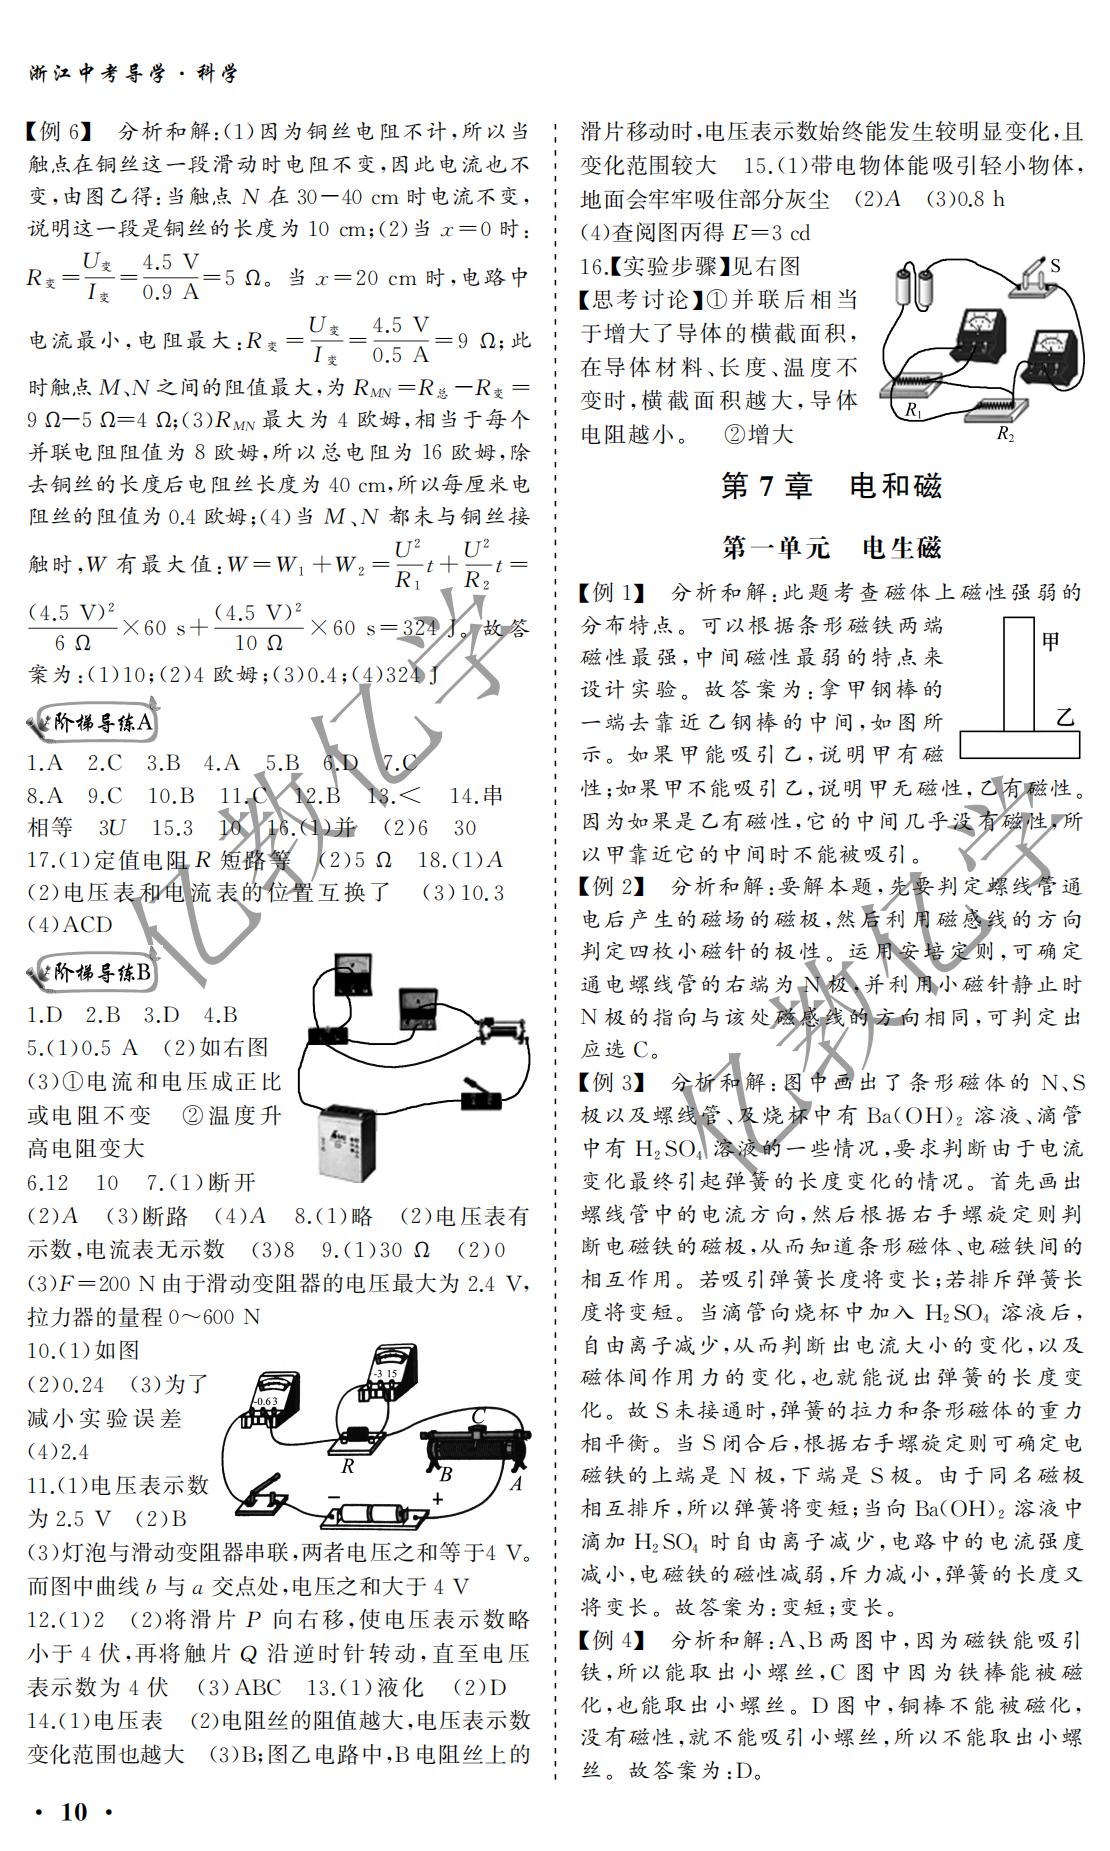 浙江中考导学·科学
【例6】 分析和解:(1)因为铜丝电阻不计,所以当
触点在铜丝这一段滑动时电阻不变,因此电流也不
变,由图乙得:当触点 N 在 30—40 cm 时电流不变,
说明这一段是铜丝的长度为 10 cm;(2)当 x=0 时:
R变=U变/I变=4.5 V/0.9 A=5 Ω。当 x=20 cm 时,电路中
电流最小,电阻最大:R变=U变/I变=4.5 V/0.5 A=9 Ω;此
时触点 M、N 之间的阻值最大,为 RMN=R总-R变=
9 Ω-5 Ω=4 Ω;(3)RMN 最大为 4 欧姆,相当于每个
并联电阻阻值为 8 欧姆,所以总电阻为 16 欧姆,除
去铜丝的长度后电阻丝长度为 40 cm,所以每厘米电
阻丝的阻值为 0.4 欧姆;(4)当 M、N 都未与铜丝接
触时,W 有最大值:W=W1+W2=U²/R1 t+U²/R2 t=
(4.5 V)²/6 Ω×60 s+(4.5 V)²/10 Ω×60 s=324 J。故答
案为:(1)10;(2)4 欧姆;(3)0.4;(4)324 J
阶梯导练A
1.A 2.C 3.B 4.A 5.B 6.D 7.C
8.A 9.C 10.B 11.C 12.B 13.< 14.串
相等 3U 15.3 10 16.(1)并 (2)6 30
17.(1)定值电阻 R 短路等 (2)5 Ω 18.(1)A
(2)电压表和电流表的位置互换了 (3)10.3
(4)ACD
阶梯导练B
1.D 2.B 3.D 4.B
5.(1)0.5 A (2)如右图
(3)①电流和电压成正比
或电阻不变 ②温度升
高电阻变大
6.12 10 7.(1)断开
(2)A (3)断路 (4)A 8.(1)略 (2)电压表有
示数,电流表无示数 (3)8 9.(1)30 Ω (2)0
(3)F=200 N 由于滑动变阻器的电压最大为 2.4 V,
拉力器的量程 0~600 N
10.(1)如图
(2)0.24 (3)为了
减小实验误差
(4)2.4
11.(1)电压表示数
为 2.5 V (2)B
-0.6 3
-3 15
C
R
B
A
- +
(3)灯泡与滑动变阻器串联,两者电压之和等于4 V。
而图中曲线 b 与 a 交点处,电压之和大于 4 V
12.(1)2 (2)将滑片 P 向右移,使电压表示数略
小于 4 伏,再将触片 Q 沿逆时针转动,直至电压
表示数为 4 伏 (3)ABC 13.(1)液化 (2)D
14.(1)电压表 (2)电阻丝的阻值越大,电压表示数
变化范围也越大 (3)B;图乙电路中,B 电阻丝上的
滑片移动时,电压表示数始终能发生较明显变化,且
变化范围较大 15.(1)带电物体能吸引轻小物体,
地面会牢牢吸住部分灰尘 (2)A (3)0.8 h
(4)查阅图丙得 E=3 cd
16.【实验步骤】见右图
【思考讨论】①并联后相当
于增大了导体的横截面积,
在导体材料、长度、温度不
变时,横截面积越大,导体
电阻越小。 ②增大
S
R1
R2
第 7 章 电和磁
第一单元 电生磁
【例1】 分析和解:此题考查磁体上磁性强弱的
分布特点。可以根据条形磁铁两端
磁性最强,中间磁性最弱的特点来
设计实验。故答案为:拿甲钢棒的
一端去靠近乙钢棒的中间,如图所
示。如果甲能吸引乙,说明甲有磁
甲
乙
性;如果甲不能吸引乙,说明甲无磁性,乙有磁性。
因为如果是乙有磁性,它的中间几乎没有磁性,所
以甲靠近它的中间时不能被吸引。
【例2】 分析和解:要解本题,先要判定螺线管通
电后产生的磁场的磁极,然后利用磁感线的方向
判定四枚小磁针的极性。运用安培定则,可确定
通电螺线管的右端为 N 极,并利用小磁针静止时
N 极的指向与该处磁感线的方向相同,可判定出
应选 C。
【例3】 分析和解:图中画出了条形磁体的 N、S
极以及螺线管、及烧杯中有 Ba(OH)₂ 溶液、滴管
中有 H₂SO₄ 溶液的一些情况,要求判断由于电流
变化最终引起弹簧的长度变化的情况。首先画出
螺线管中的电流方向,然后根据右手螺旋定则判
断电磁铁的磁极,从而知道条形磁体、电磁铁间的
相互作用。若吸引弹簧长度将变长;若排斥弹簧长
度将变短。当滴管向烧杯中加入 H₂SO₄ 溶液后,
自由离子减少,从而判断出电流大小的变化,以及
磁体间作用力的变化,也就能说出弹簧的长度变
化。故 S 未接通时,弹簧的拉力和条形磁体的重力
相平衡。当 S 闭合后,根据右手螺旋定则可确定电
磁铁的上端是 N 极,下端是 S 极。由于同名磁极
相互排斥,所以弹簧将变短;当向 Ba(OH)₂ 溶液中
滴加 H₂SO₄ 时自由离子减少,电路中的电流强度
减小,电磁铁的磁性减弱,斥力减小,弹簧的长度又
将变长。故答案为:变短;变长。
【例4】 分析和解:A、B 两图中,因为磁铁能吸引
铁,所以能取出小螺丝,C 图中因为铁棒能被磁
化,也能取出小螺丝。D 图中,铜棒不能被磁化,
没有磁性,就不能吸引小螺丝,所以不能取出小螺
丝。故答案为:D。
亿教亿学
亿教亿学
· 10 ·